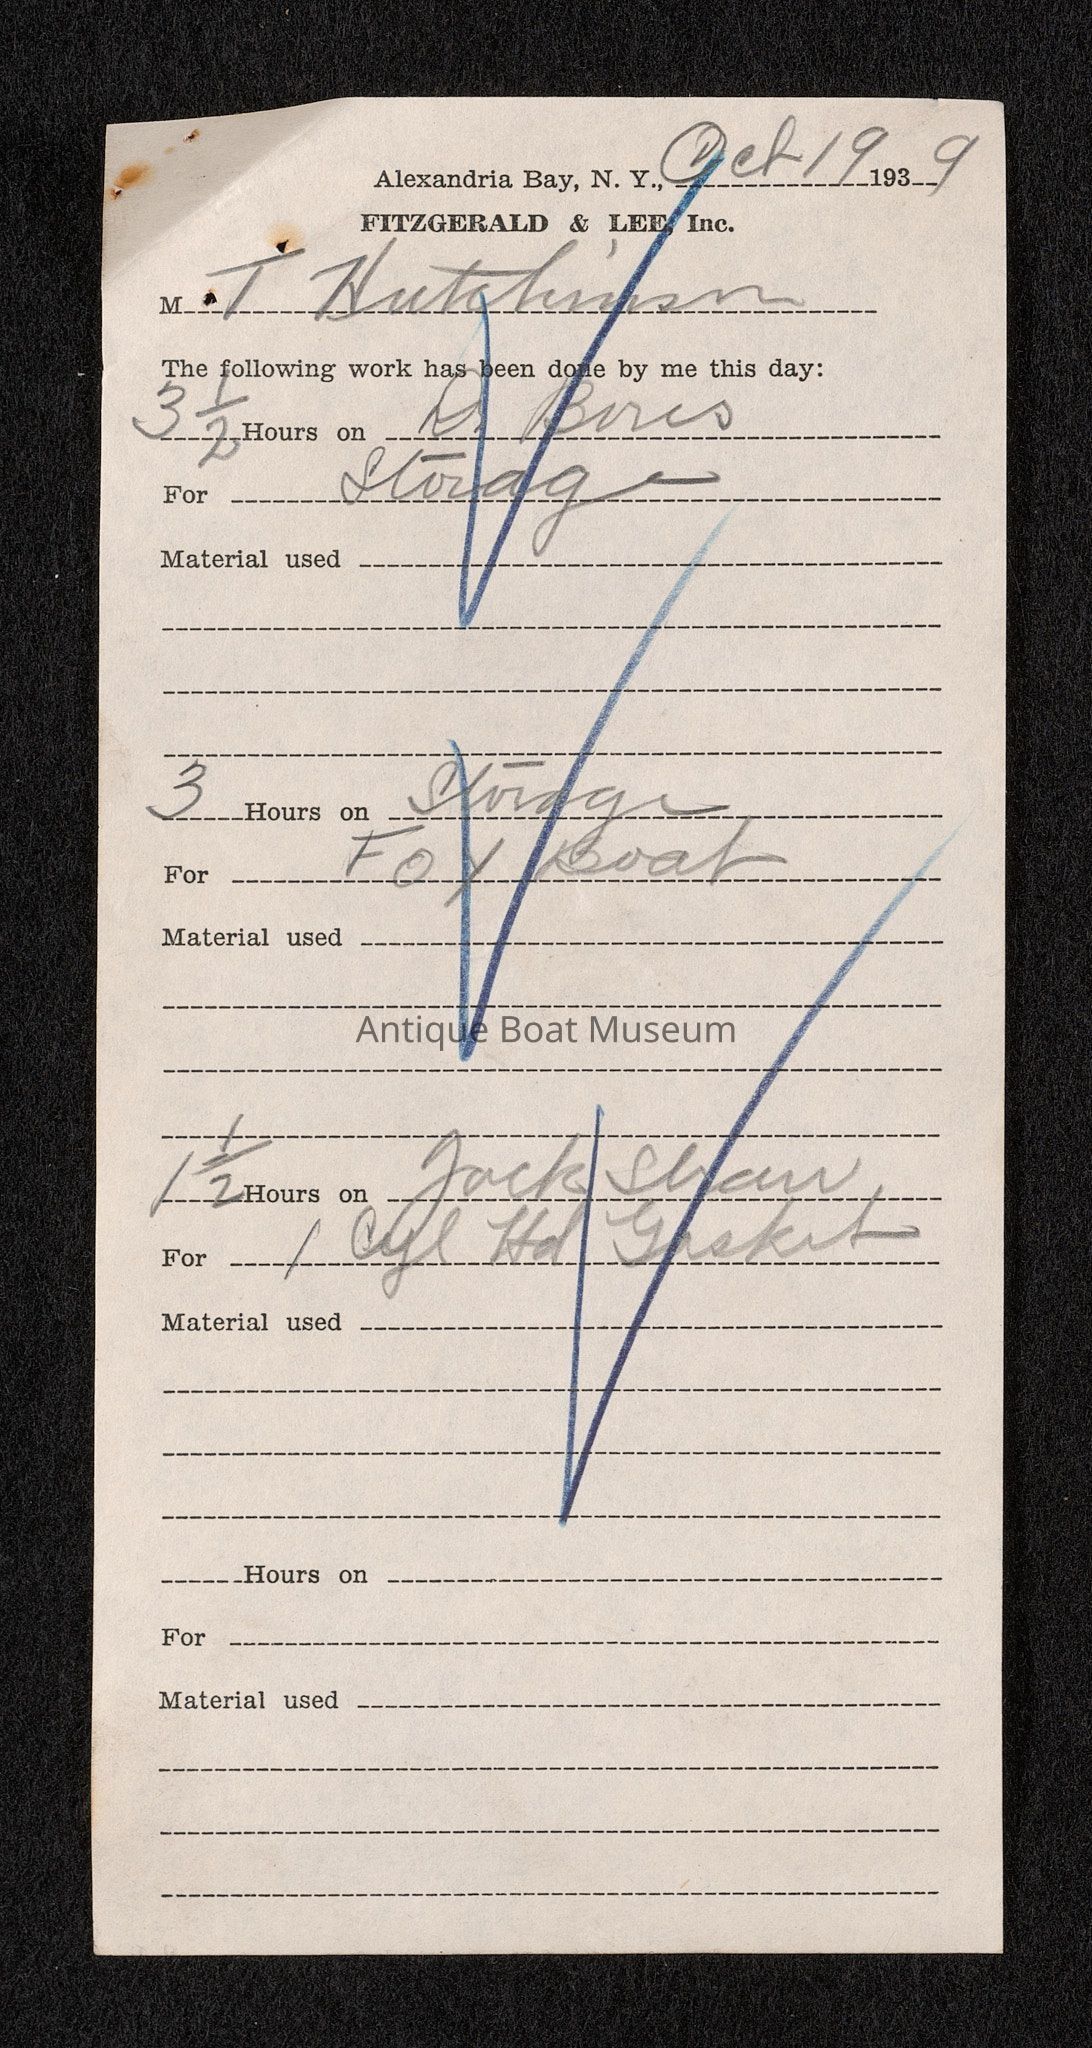 Alexandria Bay, N. Y., Oct 19 1939
FITZGERALD & LEE, Inc.
M T Hutchinson
The following work has been done by me this day:
3 1/2 Hours on Dr Bores
For Storage
Material used
3 Hours on Storage
For Fox Boat
Material used
Antique Boat Museum
1 1/2 Hours on Jack Straw
For 1 Cyl Hd Gasket
Material used
Hours on
For
Material used